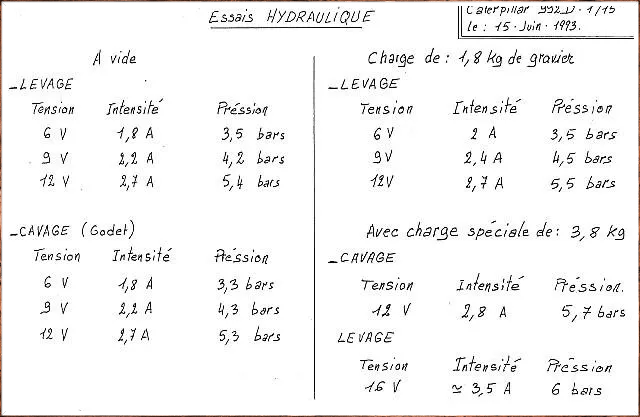 Essais HYDRAULIQUE
Caterpillar 992D. 1/15
le : 15. Juin. 1993.
A vide
_LEVAGE
Tension Intensité Préssion
6 V 1,8 A 3,5 bars
9 V 2,2 A 4,2 bars
12 V 2,7 A 5,4 bars
_CAVAGE (Godet)
Tension Intensité Préssion
6 V 1,8 A 3,3 bars
9 V 2,2 A 4,3 bars
12 V 2,7 A 5,3 bars
Charge de : 1,8 kg de gravier
_LEVAGE
Tension Intensité Préssion
6 V 2 A 3,5 bars
9 V 2,4 A 4,5 bars
12 V 2,7 A 5,5 bars
Avec charge spéciale de : 3,8 kg
_CAVAGE
Tension Intensité Préssion.
12 V 2,8 A 5,7 bars
LEVAGE
Tension Intensité Préssion
16 V ≃ 3,5 A 6 bars